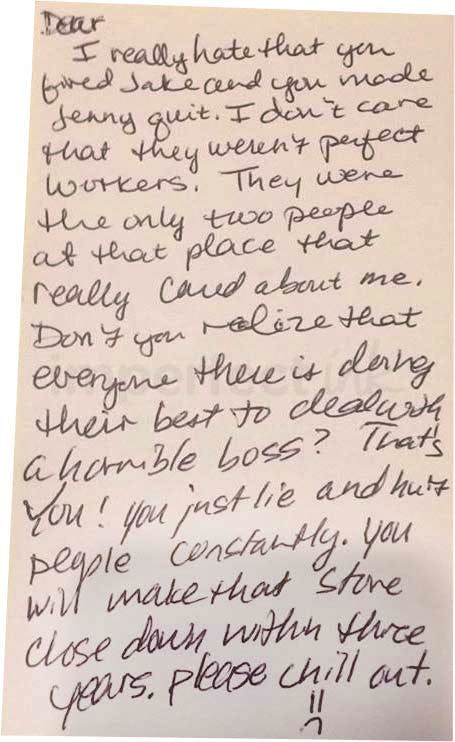 Dear
I really hate that you
fired Jake and you made
Jenny quit. I don't care
that they weren't perfect
workers. They were
the only two people
at that place that
really cared about me.
Don't you relize that
everyone there is doing
their best to deal with
a horrible boss? That's
You! you just lie and hurt
people constantly. you
will make that store
close down within three
years. please chill out.